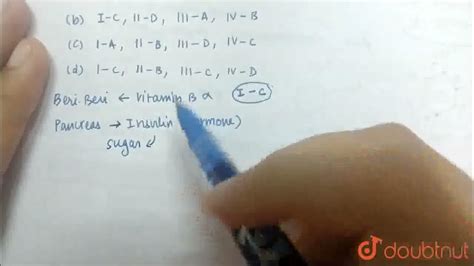 (b) I-C, II-D, III-A, IV-B
(c) I-A, II-B, III-D, IV-C
(d) I-C, II-B, III-C, IV-D
Beri Beri ← Vitamin B
I-C
Pancreas → Insulin
sugar
doubtnut